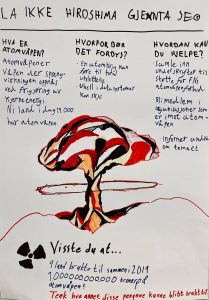 LA IKKE HIROSHIMA GJENNTA SEG
HVA ER
ATOMVÅPEN?
Atomvåpen er
våpen der spreng-
virkningen oppnås
ved frigjøring av
Kjerneenergi.
Ni land i dag
har atomvåpen
HVORFOR BØR
DET FORBYS?
- En atomkrig kan
føre til
Utslettelse
Uhell i datasystemer
Kan skje
HVORDAN KAN
DU HJELPE?
Samle inn
underskrifter til
støtte for FNs
atomvåpenforbud
Bli medlem i
organisasjoner som
er imot atom-
våpen
- Informer andre
om temaet
Visste du at...
9 land brukte til sammen i 2019
kroner på
atomvåpen!
Tenk hva annet disse pengene kunne blitt brukt til!